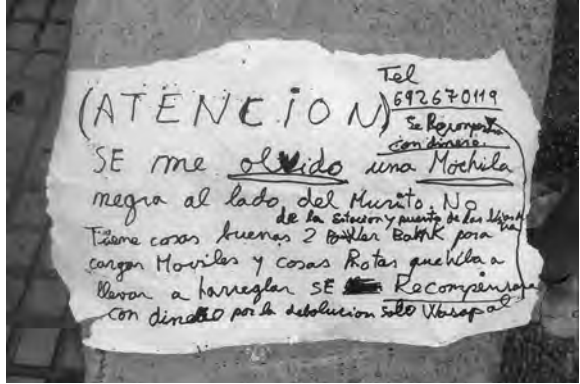 Tel
692670119
Se Recompensa
con dinero.
(ATENCION)
SE me olvido una Mochila
negra al lado del Murito. No
de la estacion y puerto de las
Tiene cosas buenas 2 Bawer BaNK para
cargar Moviles y cosas Rotas que hiba a
llevar a harreglar SE Recompensara
con dinero por la debolucion solo Wasap al